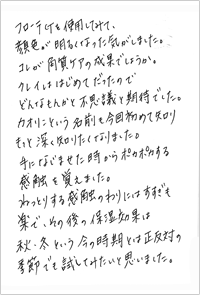 フローテを使用してみて、
顔色が明るくなった気がしました。
コレが角質ケアの成果でしょうか。
クレイははじめてだったので
どんなもんかと不思議と期待でした。
カオリンという名前も今回初めて知り
もっと深く知りたくなりました。
手になじませた時からポカポカする
感触を覚えました。
ねっとりする感触のわりにはすすぎも
楽で、その後の保湿効果は
秋・冬という今の時期とは正反対の
季節でも試してみたいと思いました。